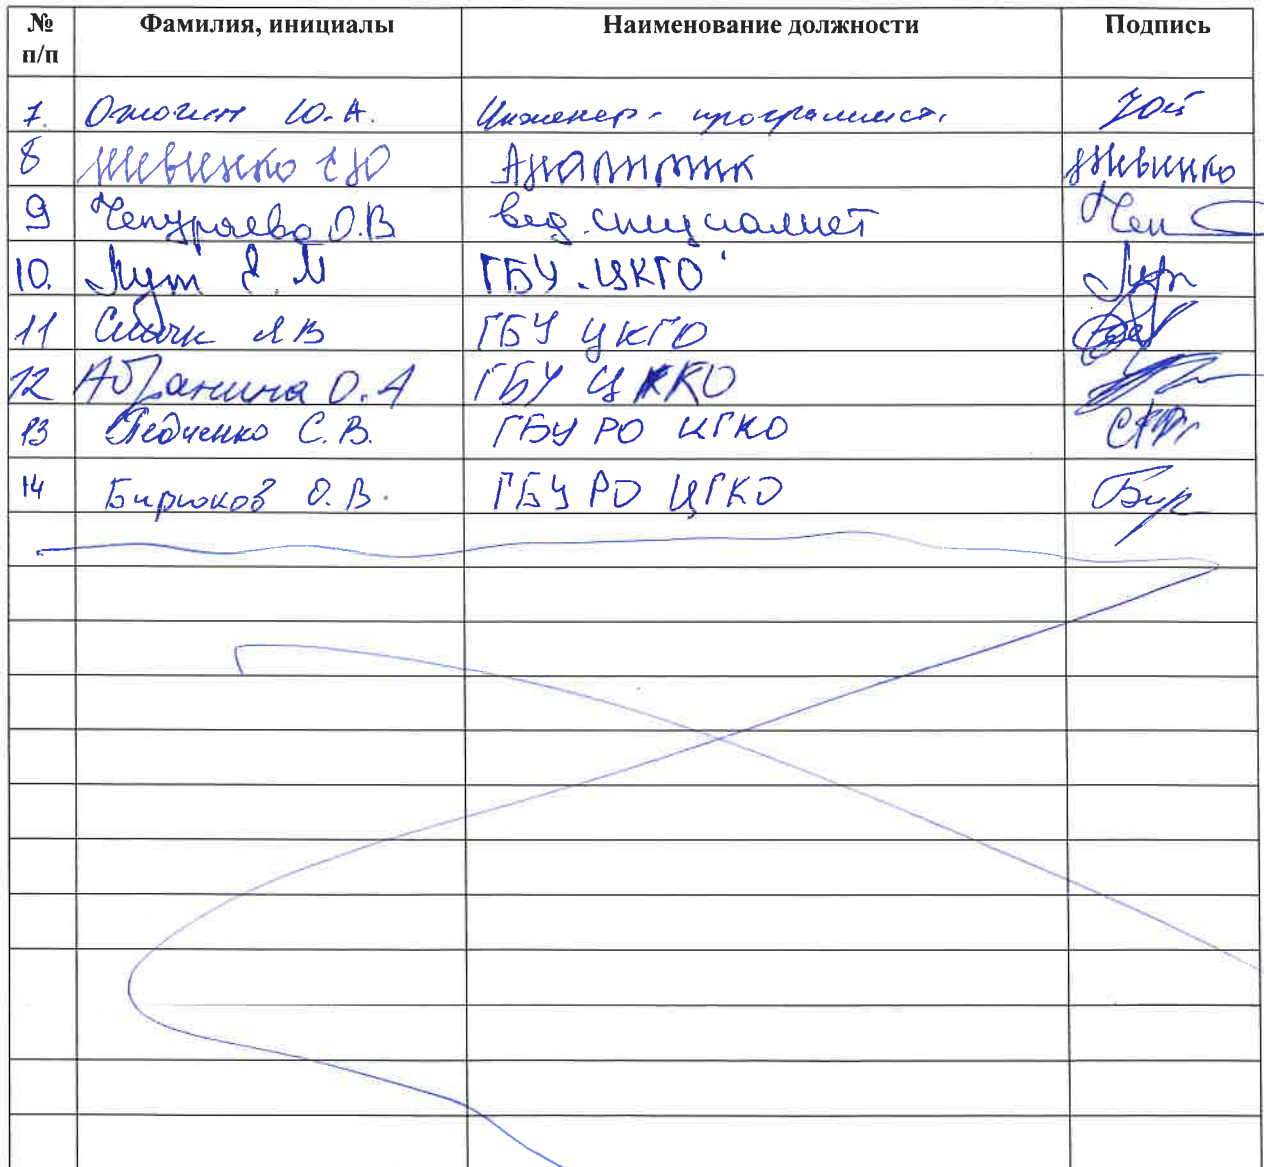 № п/п Фамилия, инициалы Наименование должности Подпись
7. Ю.А. Инженер-программист.
8 Шевченко С Ю Аналитик
9 О.В вед. специалист Чеп
10. Лут Е. М ГБУ "ЦКГО" Лут
11 В ГБУ ЦКГО
12 О.А ГБУ ЦККО
13 Педченко С.В. ГБУ РО ЦГКО
14 Бирюков О.В. ГБУ РО ЦГКО Бир